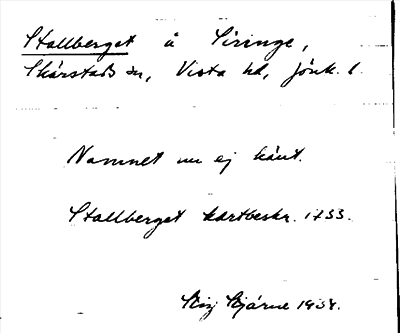 Stallberget å Siringe,
Skärstads sn, Vista hd, Jönk. l.
Namnet nu ej känt.
Stallberget kartbeskr. 1733.
Stig Bjärne 1934.